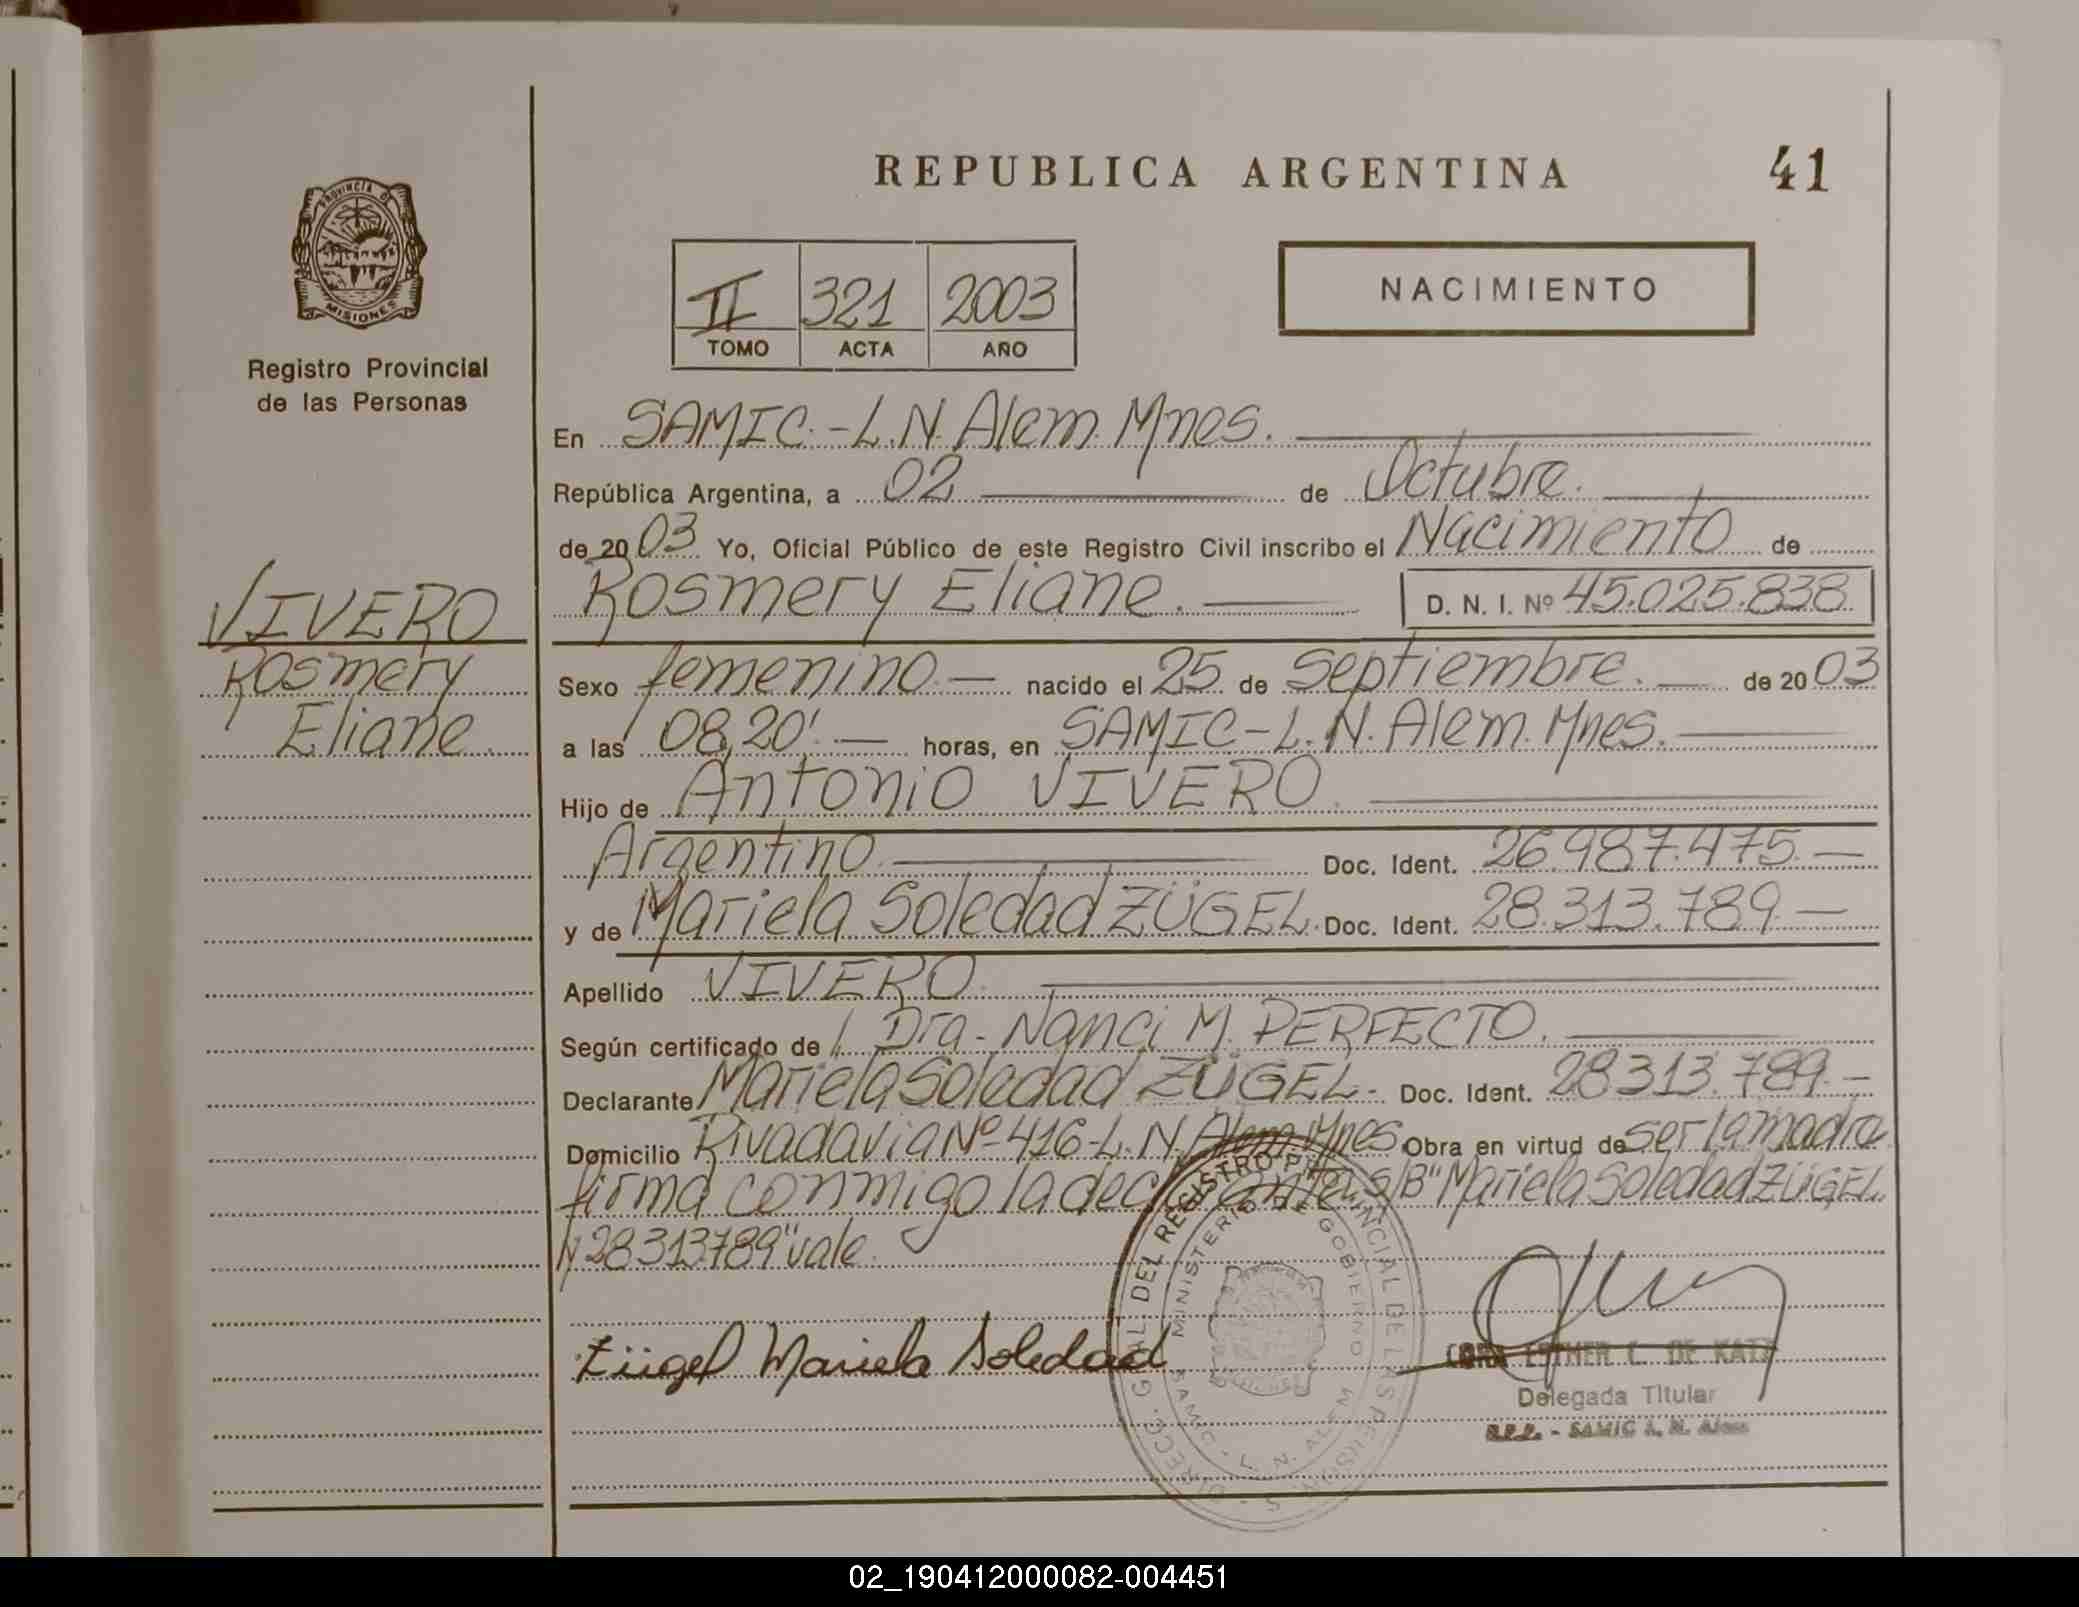 REPUBLICA ARGENTINA 41
PROVINCIA DE
MISIONES
Registro Provincial
de las Personas
II 321 2003
TOMO ACTA AÑO
NACIMIENTO
En SAMIC.-L.N. Alem. Mnes.
República Argentina, a 02 de Octubre.
de 2003 Yo, Oficial Público de este Registro Civil inscribo el Nacimiento de
Rosmery Eliane. D. N. I. Nº 45.025.838
VIVERO
Rosmery
Eliane.
Sexo femenino.— nacido el 25 de Septiembre. — de 2003
a las 08,20'.— horas, en SAMIC-L.N. Alem. Mnes.
Hijo de Antonio VIVERO.
Argentino. Doc. Ident. 26.987.475.—
y de Mariela Soledad ZÜGEL. Doc. Ident. 28.313.789.—
Apellido VIVERO.
Según certificado de Dra. Nanci M. PERFECTO.
Declarante Mariela Soledad ZÜGEL.- Doc. Ident. 28313.789.-
Domicilio Rivadavia Nº 416-L.N. Alem Mnes. Obra en virtud de ser la madre
firma conmigo la S/B "Mariela Soledad ZÜGEL
28313789" vale.
Zügel Mariela Soledad
DIRECC. GRAL. DEL REGISTRO PROVINCIAL DE LAS PERSONAS
MINISTERIO DE GOBIERNO
SAMIC - L. N. ALEM
ESTHER C. DE KATZ
Delegada Titular
R.P.P. - SAMIC L. N. Alem
02_190412000082-004451